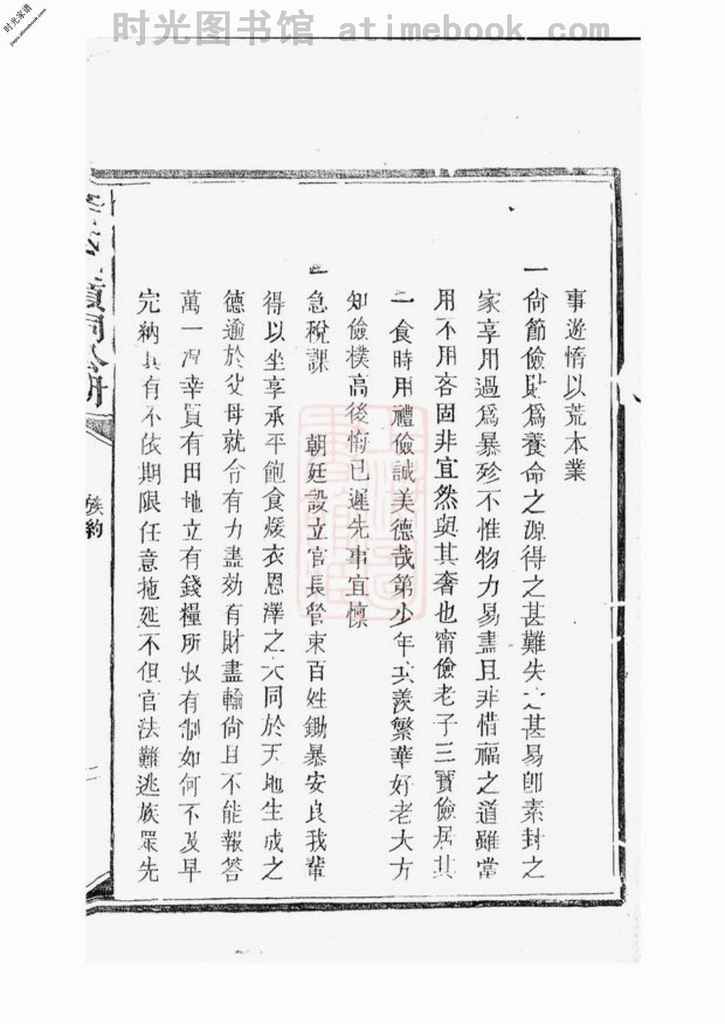 时光图书馆 atimebook.com
时光家谱
事遊惰以荒本業
一尙節儉財爲養命之源得之甚難失之甚易卽素封之
家享用過爲暴殄不惟物力易盡且非惜福之道雖當
用不用吝固非宜然與其奢也甯儉老子三寶儉居其
一食時用禮儉誠美德哉第少年共羨繁華好老大方
知儉樸高後悔已遲先事宜懔
一急稅課 朝廷設立官長管束百姓鋤暴安良我輩
得以坐享承平飽食煖衣恩澤之大同於天地生成之
德逾於父母就令有力盡効有財盡輸尙且不能報答
萬一况幸置有田地立有錢糧所收有制如何不及早
完納其有不依期限任意拖延不但官法難逃族眾先
族約
二